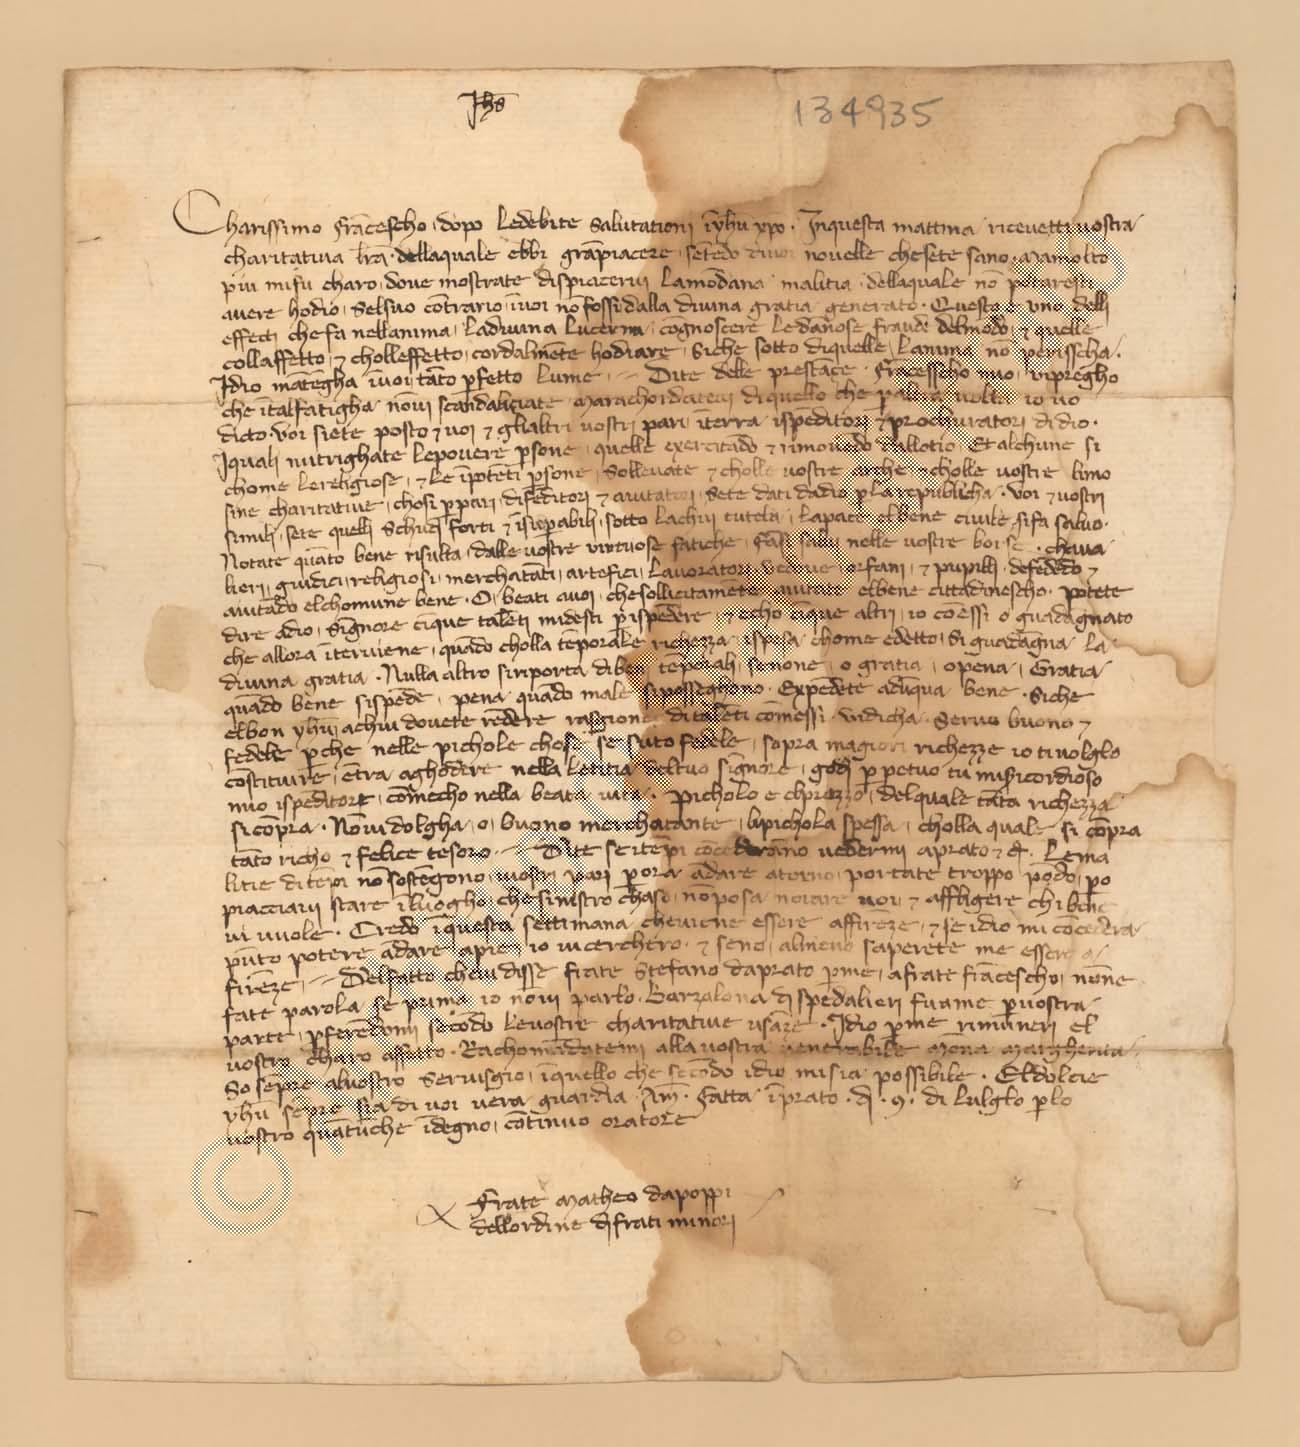 Jhs
134935
Charissimo frācescho, dopo le debite salutationi ī yhū xpo. In questa mattina ricevetti vostra
charitativa lr̄a. dellaquale ebbi grā piacere, sētēdo di voi novelle che sete sano. Ma molto
piu mi fu charo, dove mostrate dispiacervi la mōdana malitia, dellaquale nō potaresti
avere hodio, sel suo cōtrario, ī voi nō fossi dalla divina gratia generato. Questo e uno delli
effecti che fa nellanima, la divina lucerna, cognoscere le dānose fraude del mōdo, & quelle
collaffetto, & cholleffetto, cordalmēte hodiare, siche sotto di quelle, lanima nō perisscha.
Idio mātēgha ī voi tāto pfetto lume, Dite delle prestāçe. Frācesscho mio, vi pregho
che ī tal fatigha nō vi scandaliçiate, ma rachordatevi di quello che p altra volta io vo
dicto. Voi siete posto & voi & gli altri vostri pari ī terra ispēditori & prochuratori di dio.
I quali nutrighate le povere psone, quelle exercitādo & rimovēdo dallotio. Et alchune si
chome le religiose, & le īpotēti psone, sollevate & cholle vostre arche & cholle vostre limo
sine charitative, chosi p pari, difēditori & aiutatori, sete dati da dio p la republicha. Voi & vostri
simili, sete quelli schudi forti & īsupabili, sotto la chui tutela, la pace el bene civile si fa salvo.
Notate quāto bene risulta, dalle vostre virtuose fatiche, fāsi salvi nelle vostre borse, chava
lieri, giudici, religiosi, merchatāti, artefici, lavoratori, vedove, orfani, & pupilli, defēdēdo &
aiutādo el chomune bene. O, beati a voi, che sollicitamēte aiutate el bene cittadinescho. Potete
dire a dio, Signore cīque talēti mi desti p ispēdere, & echo cīque altri, io cō essi o guadagnato
che allora īterviene, quādo cholla tēporale richezza, ispesa chome e detto, si guadāgna la
divina gratia. Nulla altro si riporta di beni tēporali, se none, o gratia, o pena, Gratia
quādo bene si spēde, pena quādo male si posseghono. Expēdete adūqua bene. Siche
el bon yhū a chui dovete rēdere rasgione di talēti cōmessi. vi dicha. Servo buono &
fedele pche nelle pichole chose se suto fedele, sopra magiori richezze io ti volglo
cōstituire, ētra a ghodere nella letitia del tuo signore, godi p ppetuo tu misiricordioso
mio ispēditore, cō mecho nella beata vita. Picholo e ch prezzo, del quale tāta richezza
si cōpra. Nō vi dolgha, o, buono merchatante, la pichola spessa, cholla quale si cōpra
tāto richo & felice tesoro. Dite se i tēpi cōcederāno vedermi a prato & c. Le ma
litie di tēpi nō sostēgono, i vostri pari p ora ādare atorno, portate troppo pōdo, po
piacciavi stare ī luogho, che sinistro chaso, nō posa noiare voi, & affligere chi bene
vi vuole. Credo ī questa settimana che viene essere a ffirēze, & se idio mi cōcedera
puto potere ādare a pie, io vi cerchero. & seno, almeno saperete me essere a
firēze, Del fatto che vi disse frate Stefano da prato p me, a frate frācescho, none
fate parola, se prima io nō vi parlo. Barzalona di spedalieri fu a me p vostra
parte, pferēdomi secōdo le vostre charitative usāze. Idio p me rimuneri el
vostro charo affetto. Rachomādatemi alla vostra venerabile mona margherita.
So sēpre al vostro servisgio, ī quello che secōdo idio mi sia possibile. El dolcie
yhū sēpre sia di voi vera guardia. Am̄. Fatta ī prato. dì. 9. di lulglo p lo
vostro quātūche īdegno, cōtinuo oratore
Frate Matheo da poppi
dellordine di frati minori